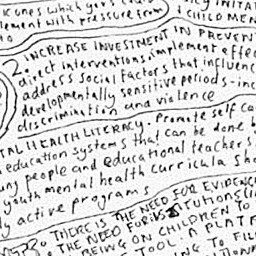 K ones which
element with pressure from
to
CHILD MEN
2. INCREASE INVESTMENT IN PREVEN
direct interventions, implement effec
address social factors that influenc
developmentally sensitive periods - inc
discrimination and violence
TAL HEALTH LITERACY. Promote self ca
education systems that can be done b
ung people and educational teachers
youth mental health curricula sho
ly active programs
THERE IS THE NEED FOR EVIDENC
THE NEED FOR
BEING ON CHILDREN TO
TOOL. A PLATF
ING TO FIL